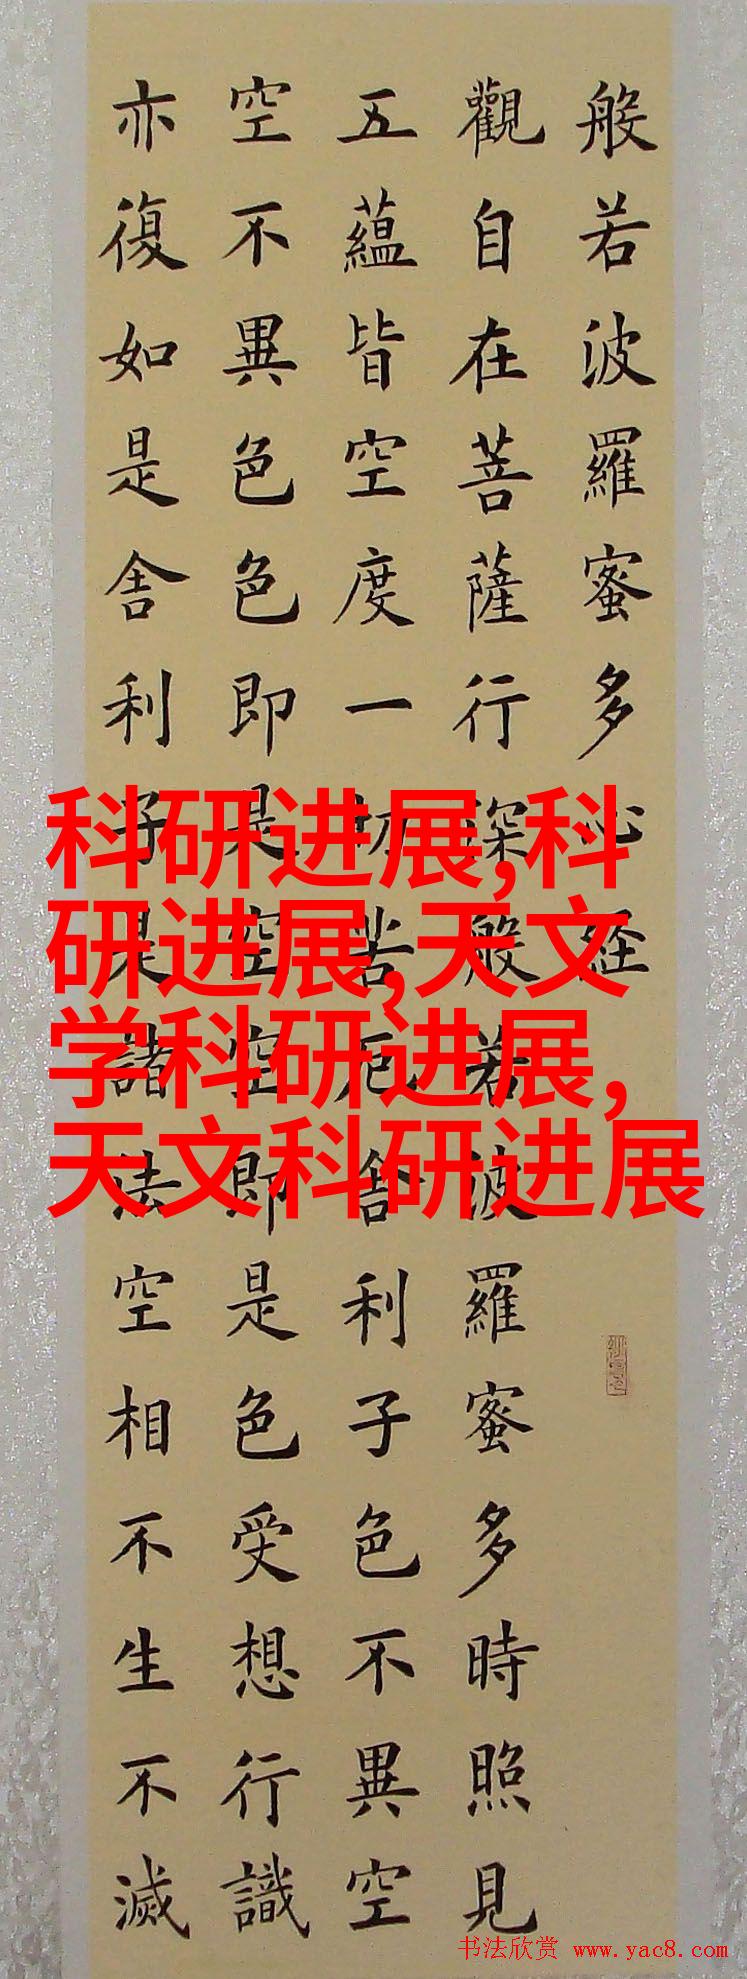 般若波羅蜜多心経
觀自在菩薩行深般若波羅蜜多時照見
五蘊皆空度一切苦厄舍利子色不異空
空不異色色即是空空即是色受想行識
亦復如是舍利子是諸法空相不生不滅
科研进展,科
研进展,天文
学科研进展,
天文科研进展
书法欣赏 www.yac8.com